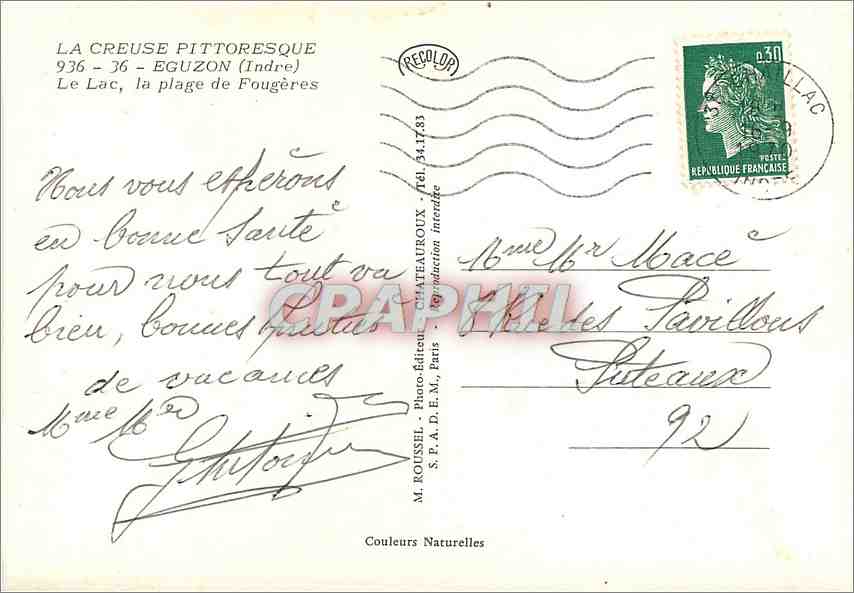 LA CREUSE PITTORESQUE
936 - 36 - EGUZON (Indre)
Le Lac, la plage de Fougères
RECOLOR
0,30
POSTES
REPUBLIQUE FRANÇAISE
Nous vous espérons
en bonne santé
pour nous tout va
bien, bonnes
de vacances
Mme Mr
M. ROUSSEL - Photo-Éditeur - CHATEAUROUX - Tél. 34.17.83
S. P. A. D. E. M., Paris - Reproduction interdite
CPARPHIL
Mme Mr Macé
8 Rue des Pavillons
Puteaux
92
Couleurs Naturelles